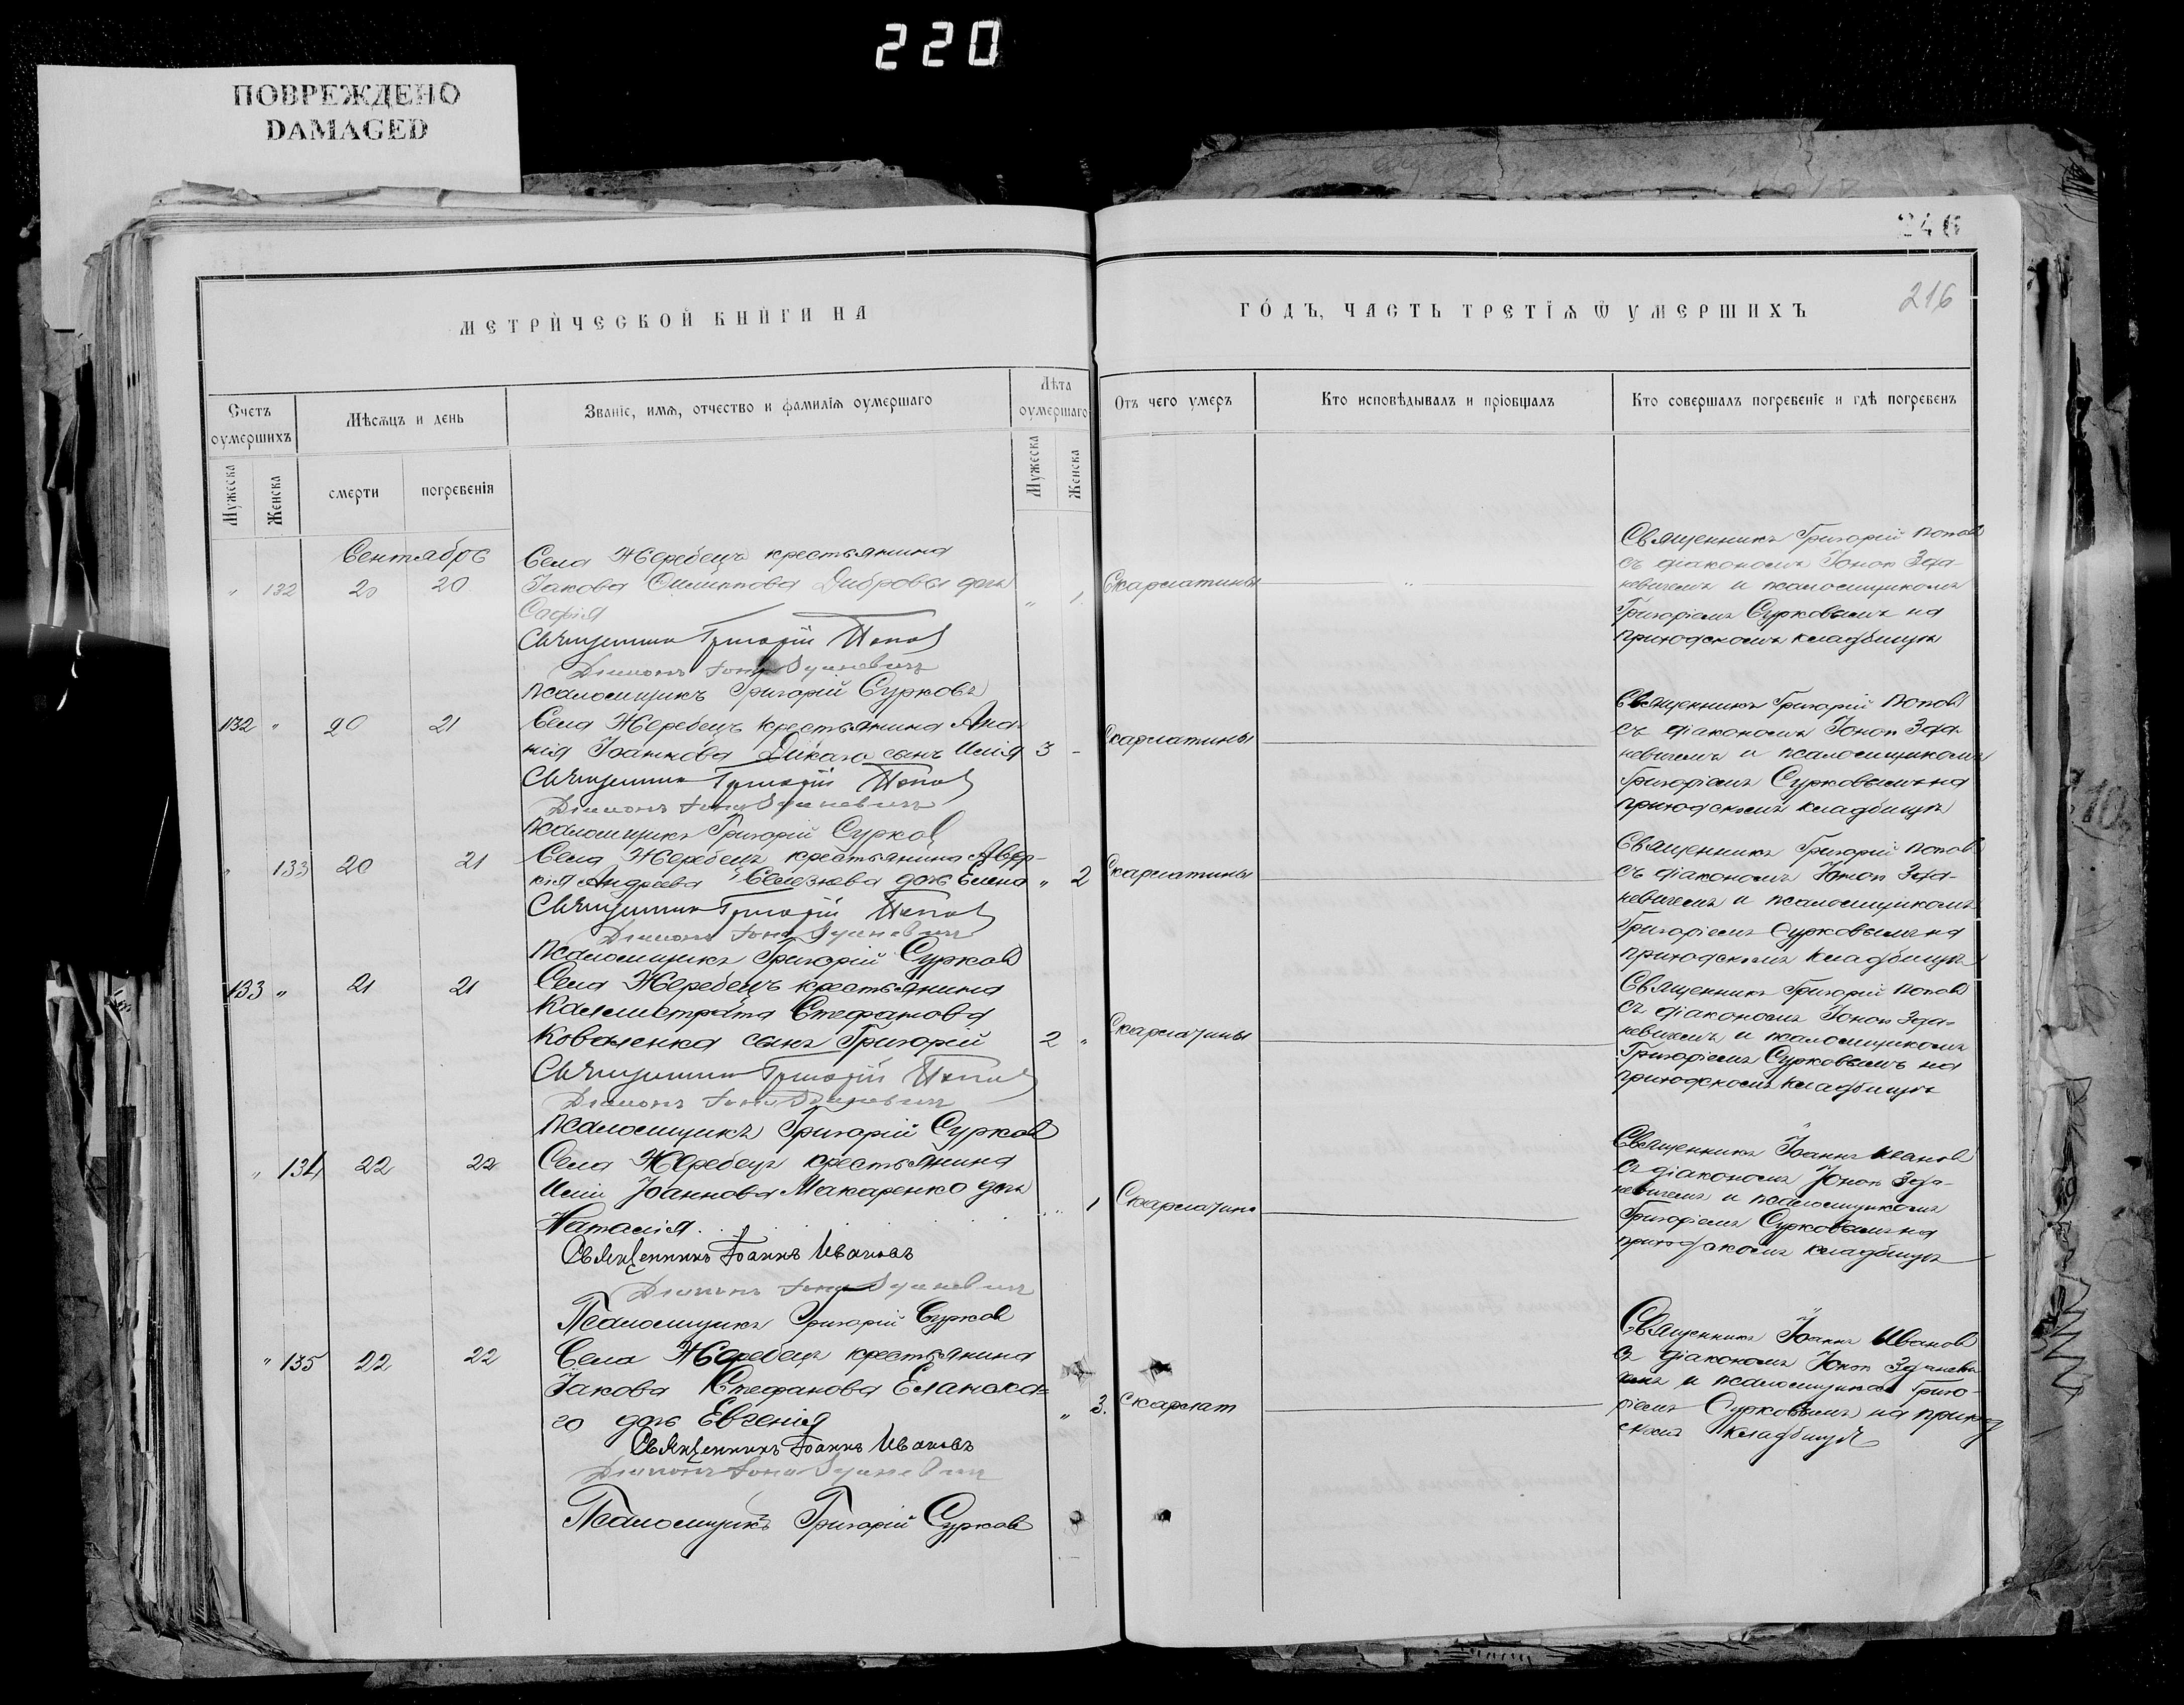 220
ПОВРЕЖДЕНО
DAMAGED
246
216
МЕТРИЧЕСКОЙ КНИГИ НА
ГОДЪ, ЧАСТЬ ТРЕТІЯ Ѿ УМЕРШИХЪ
Счетъ оумершихъ
Мѣсяцъ и день
Званіе, имя, отчество и фамилія оумершаго
Лѣта оумершаго
Отъ чего умеръ
Кто исповѣдывалъ и пріобщалъ
Кто совершалъ погребеніе и гдѣ погребенъ
Мужеска
Женска
смерти
погребенія
Мужеска
Женска
Сентябрь
" 132 20 20
Села Жеребецъ крестьянина
Іакова Филиппова Дибровы дочь
Софія
" 1
Скарлатины
Священникъ Григорій Попов
Діаконъ Іона Зданевичъ
Псаломщикъ Григорій Сурковъ
Священникъ Григорій Попов
съ діакономъ Іоною Зда-
невичемъ и псаломщикомъ
Григоріемъ Сурковымъ на
приходскомъ кладбищѣ
132 " 20 21
Села Жеребецъ крестьянина Ана-
нія Іоаннова Дикаго сынъ Илія
3 -
Скарлатины
Священникъ Григорій Попов
Діаконъ Іона Зданевичъ
Псаломщикъ Григорій Сурков
Священникъ Григорій Попов
съ діакономъ Іоною Зда-
невичемъ и псаломщикомъ
Григоріемъ Сурковымъ на
приходскомъ кладбищѣ
" 133 20 21
Села Жеребецъ крестьянина Авер-
кія Андреева Селезнева дочь Елена
" 2
Скарлатины
Священникъ Григорій Попов
Діаконъ Іона Зданевичъ
Псаломщикъ Григорій Сурков
Священникъ Григорій Попов
съ діакономъ Іоною Зда-
невичемъ и псаломщикомъ
Григоріемъ Сурковымъ на
приходскомъ кладбищѣ
133 " 21 21
Села Жеребецъ крестьянина
Каллистрата Стефанова
Коваленка сынъ Григорій
2 "
Скарлатины
Священникъ Григорій Попов
Діаконъ Іона Зданевичъ
Псаломщикъ Григорій Сурков
Священникъ Григорій Попов
съ діакономъ Іоною Зда-
невичемъ и псаломщикомъ
Григоріемъ Сурковымъ на
приходскомъ кладбищѣ
" 134 22 22
Села Жеребецъ крестьянина
Иліи Іоаннова Макаренко дочь
Наталія
" 1
Скарлатина
Священникъ Іоаннъ Ивановъ
Діаконъ Іона Зданевичъ
Псаломщикъ Григорій Сурков
Священникъ Іоаннъ Иванов
съ діакономъ Іоною Зда-
невичемъ и псаломщикомъ
Григоріемъ Сурковымъ на
приходскомъ кладбищѣ
" 135 22 22
Села Жеребецъ крестьянина
Іакова Стефанова Еланска-
го дочь Евгенія
" 3.
Скарлат
Священникъ Іоаннъ Ивановъ
Діаконъ Іона Зданевичъ
Псаломщикъ Григорій Сурков
Священникъ Іоаннъ Иванов
съ діакономъ Іоною Зданеви-
чемъ и псаломщиком Григо-
ріемъ Сурковымъ на приход
скомъ кладбищѣ